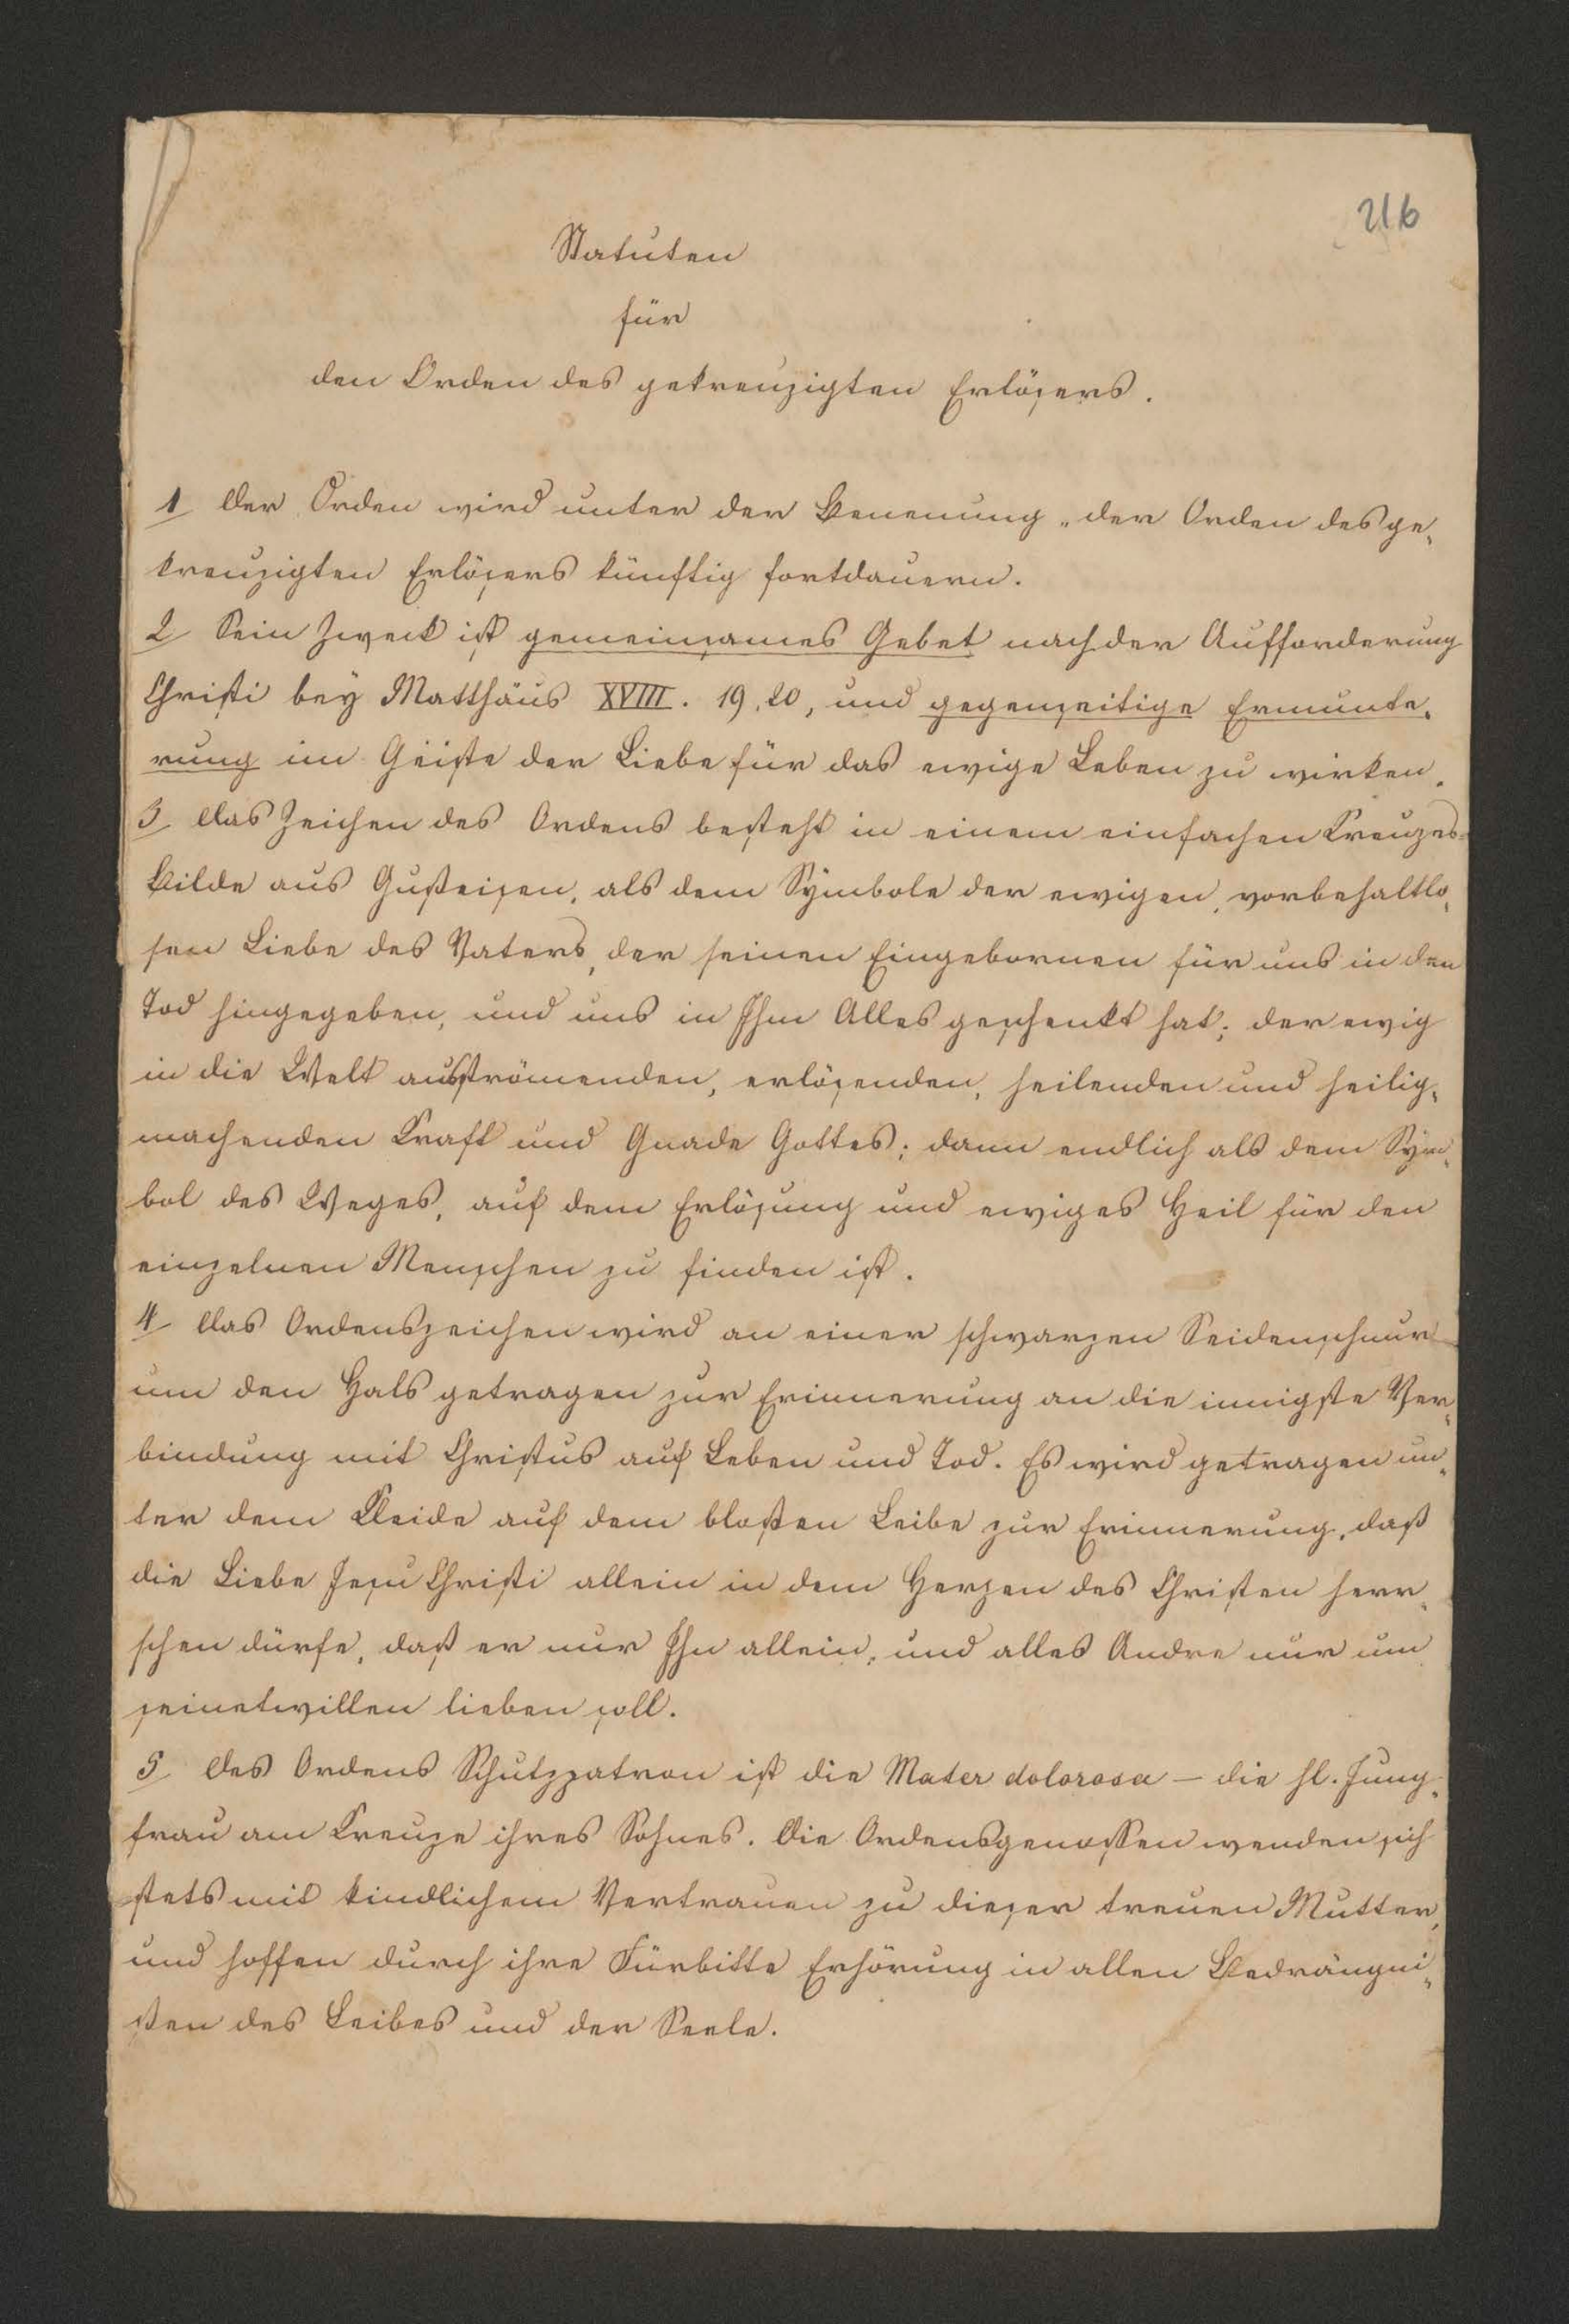 216
Statuten
für
den Orden des gekreuzigten Erlösers.
1 Der Orden wird unter der Benenung „der Orden des ge-
kreuzigten Erlösers künftig fortdauern.
2 Sein Zweck ist gemeinsames Gebet nach der Aufforderung
Christi bey Matthäus XVIII. 19, 20, und gegenseitige Ermunte-
rung im Geiste der Liebe für das ewige Leben zu wirken.
3 Das Zeichen des Ordens besteht in einem einfachen Kreuzes-
bilde aus Gußeisen, als dem Symbole der ewigen, vorbehaltlo-
sen Liebe des Vaters, der seinen Eingebornen für uns in den
Tod hingegeben, und uns in Ihm Alles geschenkt hat; der ewig
in die Welt ausströmenden, erlösenden, heilenden und heilig-
machenden Kraft und Gnade Gottes; dann endlich als dem Sym-
bol des Weges, auf dem Erlösung und ewiges Heil für den
einzelnen Menschen zu finden ist.
4 Das Ordenszeichen wird an einer schwarzen Seidenschnur
um den Hals getragen zur Erinnerung an die innigste Ver-
bindung mit Christus auf Leben und Tod. Es wird getragen un-
ter dem Kleide auf dem bloßen Leibe zur Erinnerung, daß
die Liebe Jesu Christi allein in dem Herzen des Christen herr-
schen dürfe, daß er nur Ihn allein, und alles Andre nur um
seinetwillen lieben soll.
5 Des Ordens Schutzpatron ist die Mater dolorosa – die hl. Jung-
frau am Kreuze ihres Sohnes. Die Ordensgenossen wenden sich
stets mit kindlichem Vertrauen zu dieser treuen Mutter,
und hoffen durch ihre Fürbitte Erhörung in allen Bedrängni-
ßen des Leibes und der Seele.